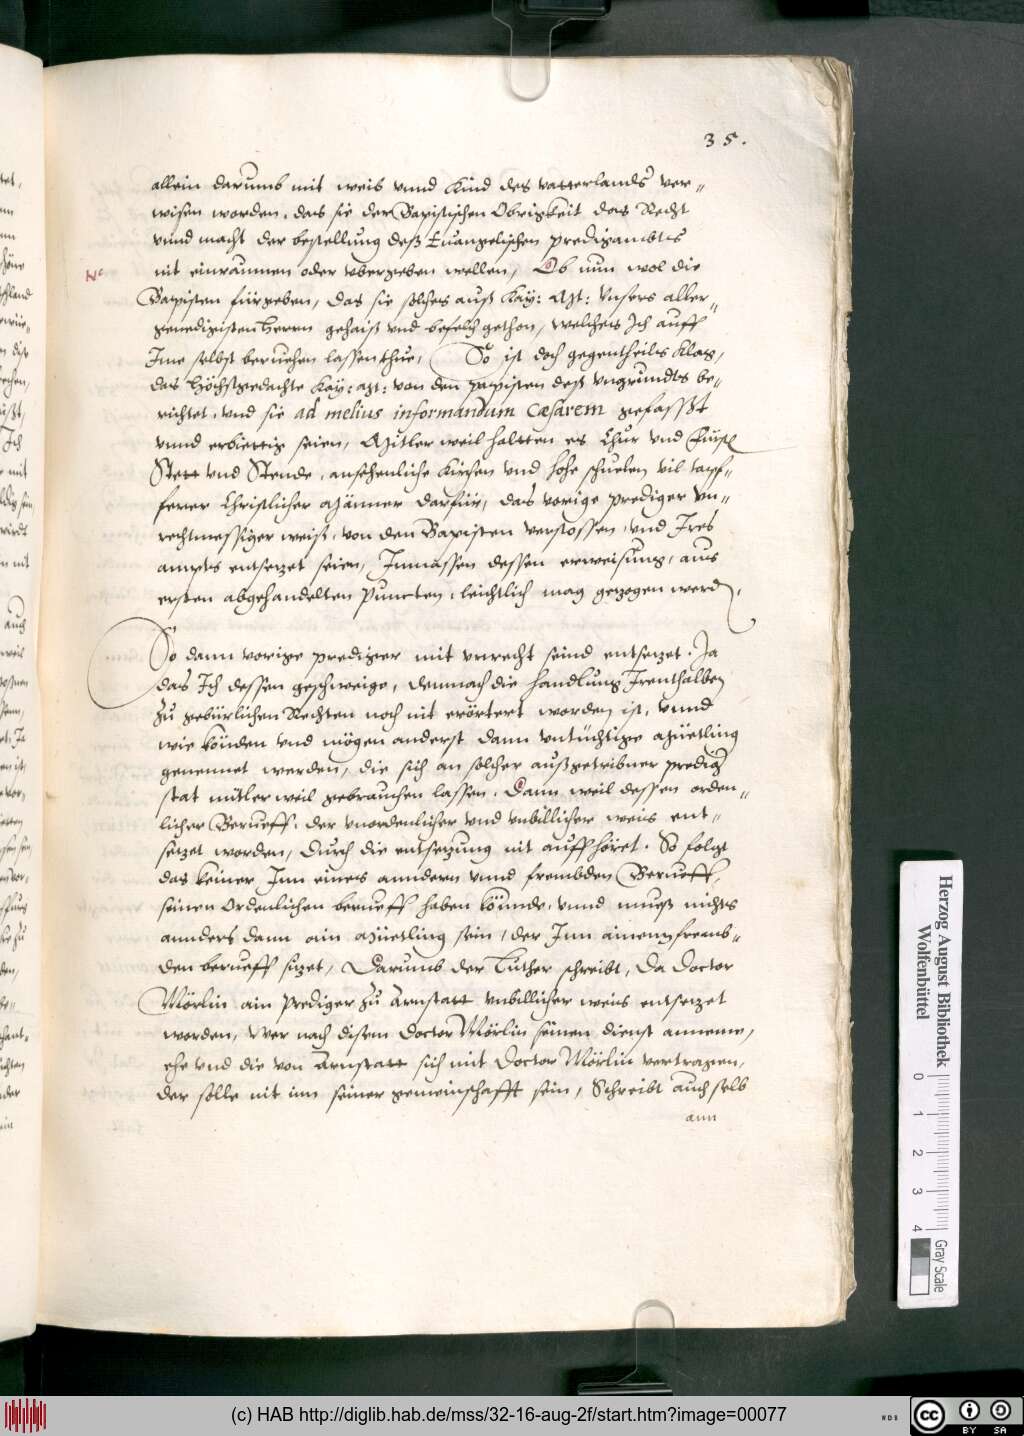 35.
allein darumb mit weib vnnd Kind des vatterlands ver-
wisen worden, das sie der Bapistischen Obrigkeit das Recht
vnnd macht der bestellung deß Euangelischen predigambts
nit einraumen oder vbergeben wellen, Ob nun wol die
Nª
Bapisten fürgeben, das sie solches auß Kay: Mt: Vnsers aller-
genedigisten Herrn gehaiß vnd befelch gethon, welches Ich auff
Ime selbst beruehen lassen thue, So ist doch gegentheils klag,
das höchstgedachte Kay: Mt: von den papisten deß vngrundts be-
richtet, vnd sie ad melius informandum Cæsarem gefasst
vnnd erbiettig seien, Mitlerweil haltten es Chur vnd Fürstl
Stett vnd Stende, ansehenliche Kirchen vnd hohe schuelen vil tapf-
ferer Christlicher Männer darfür, das vorige prediger vn-
rechtmessiger weiß, von den Bapisten verstossen, vnd Ires
ampts entsetzet seien, Inmassen dessen erweisung, aus
ersten abgehandelten Puncten, leichtlich mag gezogen werd,
So dann vorige prediger mit vnrecht seind entsetzet. Ja
das Ich dessen geschweige, demnach die handlung Irenthalben
zu gebürlichen Rechten noch nit erörtert worden ist, vnnd
wie könden vnd mögen anderst dann vntüchtige Müetling
genennet werden, die sich an solcher außgetribner predig
stat mitlerweil gebrauchen lassen. Dann weil dessen orden-
licher Berueff, der vnordenlicher vnd vnbillicher weis ent-
setzet worden, durch die entsetzung nit auffhöret. So folgt
das keiner Inn eines anndern vnnd frembden Berueff,
seinen ordenlichen berueff haben könnde, vnnd mueß nichts
annders dann ain Müetling sein, der Inn ainem fremb-
den berueff sitzet, Darumb der Luther schreibt, Da Doctor
Mörlin ain prediger zu Arnstatt vnbillicher weis entsetzet
worden, Wer nach disem Doctor Mörlin seinen dienst annemme,
ehe vnd die von Arnstatt sich mit Doctor Mörlin vertragen,
der solle nit inn seiner gemeinschafft sein, Schreibt auch selb
ann
Herzog August Bibliothek
Wolfenbüttel
0 1 2 3 4
Gray Scale
(c) HAB http://diglib.hab.de/mss/32-16-aug-2f/start.htm?image=00077
WDB
cc
BY SA